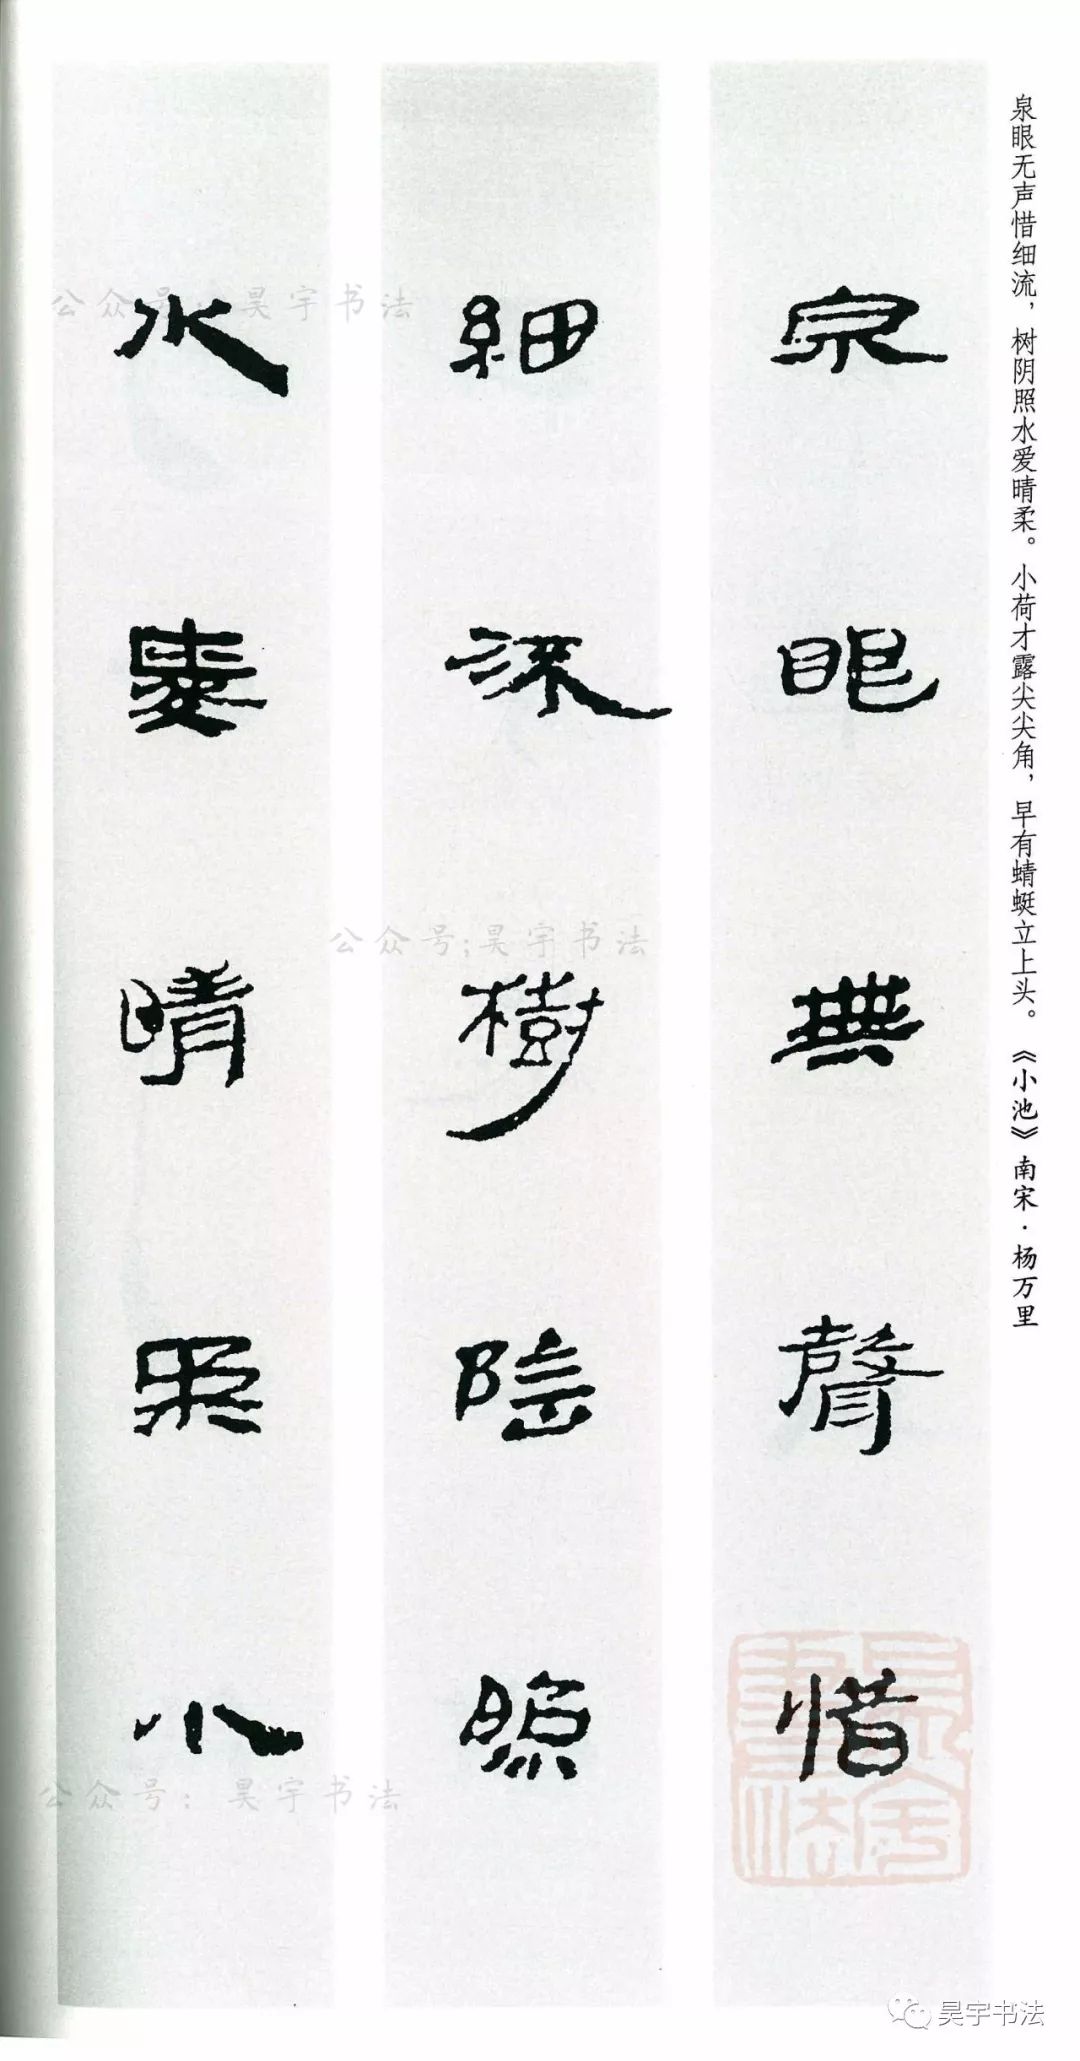 泉眼无声惜细流，树阴照水爱晴柔。小荷才露尖尖角，早有蜻蜓立上头。《小池》南宋·杨万里
泉眼無聲惜
細流樹陰照
水愛晴柔小
公众号：昊宇书法
公众号;昊宇书法
公众号：昊宇书法
昊宇書法
昊宇书法